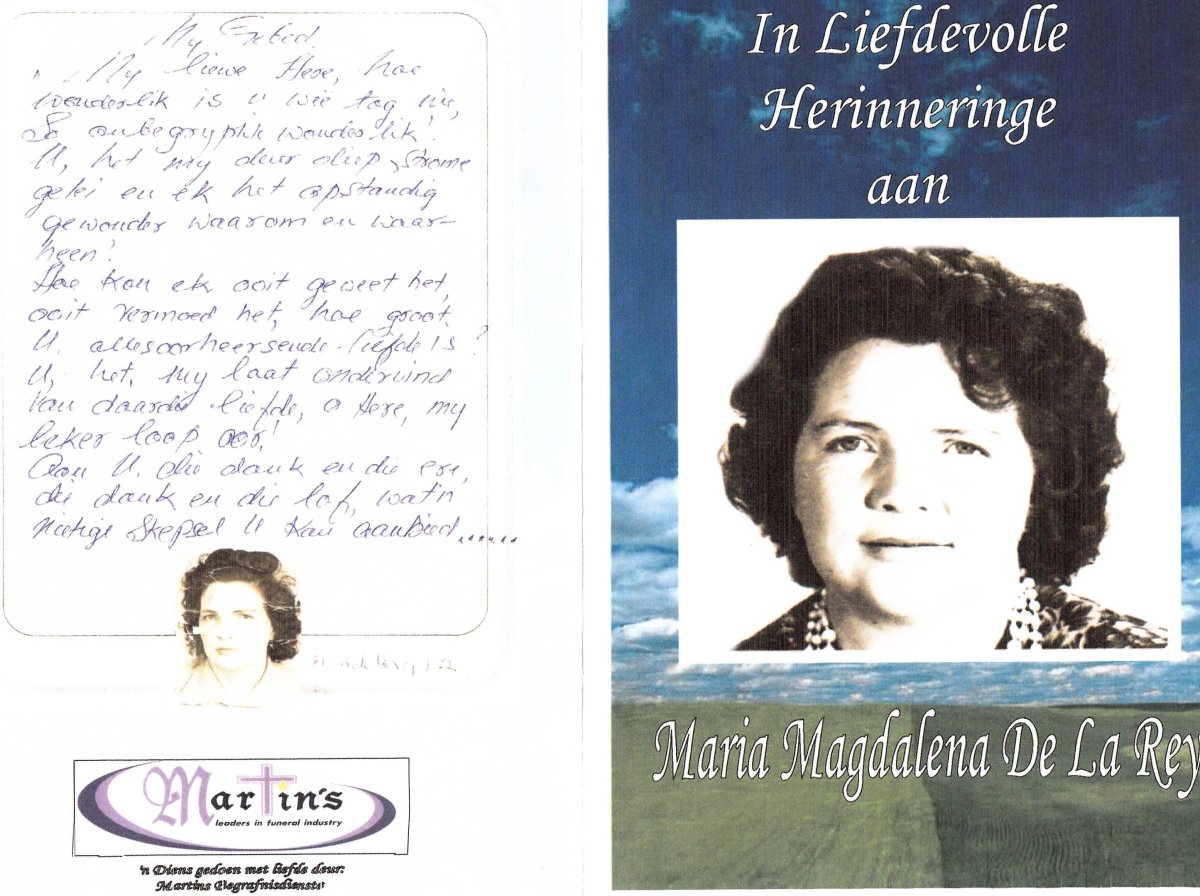 My Gebed
" My liewe Here, hoe
wonderlik is U wie tog nie,
So onbegryplik wonderlik!
U, het my deur diep, strome
gelei en ek het opstandig
gewonder waarom en waar-
heen!
Hoe kon ek ooit geweet het,
ooit vermoed het, hoe groot
U. allesoorheersende-liefde is?
U, het, my laat ondervind
van daardie liefde, o Here, my
beker loop oor!
Aan U. die dank en die ere,
die dank en die lof, wat 'n
nietige skepsel U kan aanbied......
Martin's
leaders in funeral industry
'n Diens gedoen met liefde deur:
Martins Begrafnisdienste
In Liefdevolle
Herinneringe
aan
Maria Magdalena De La Rey